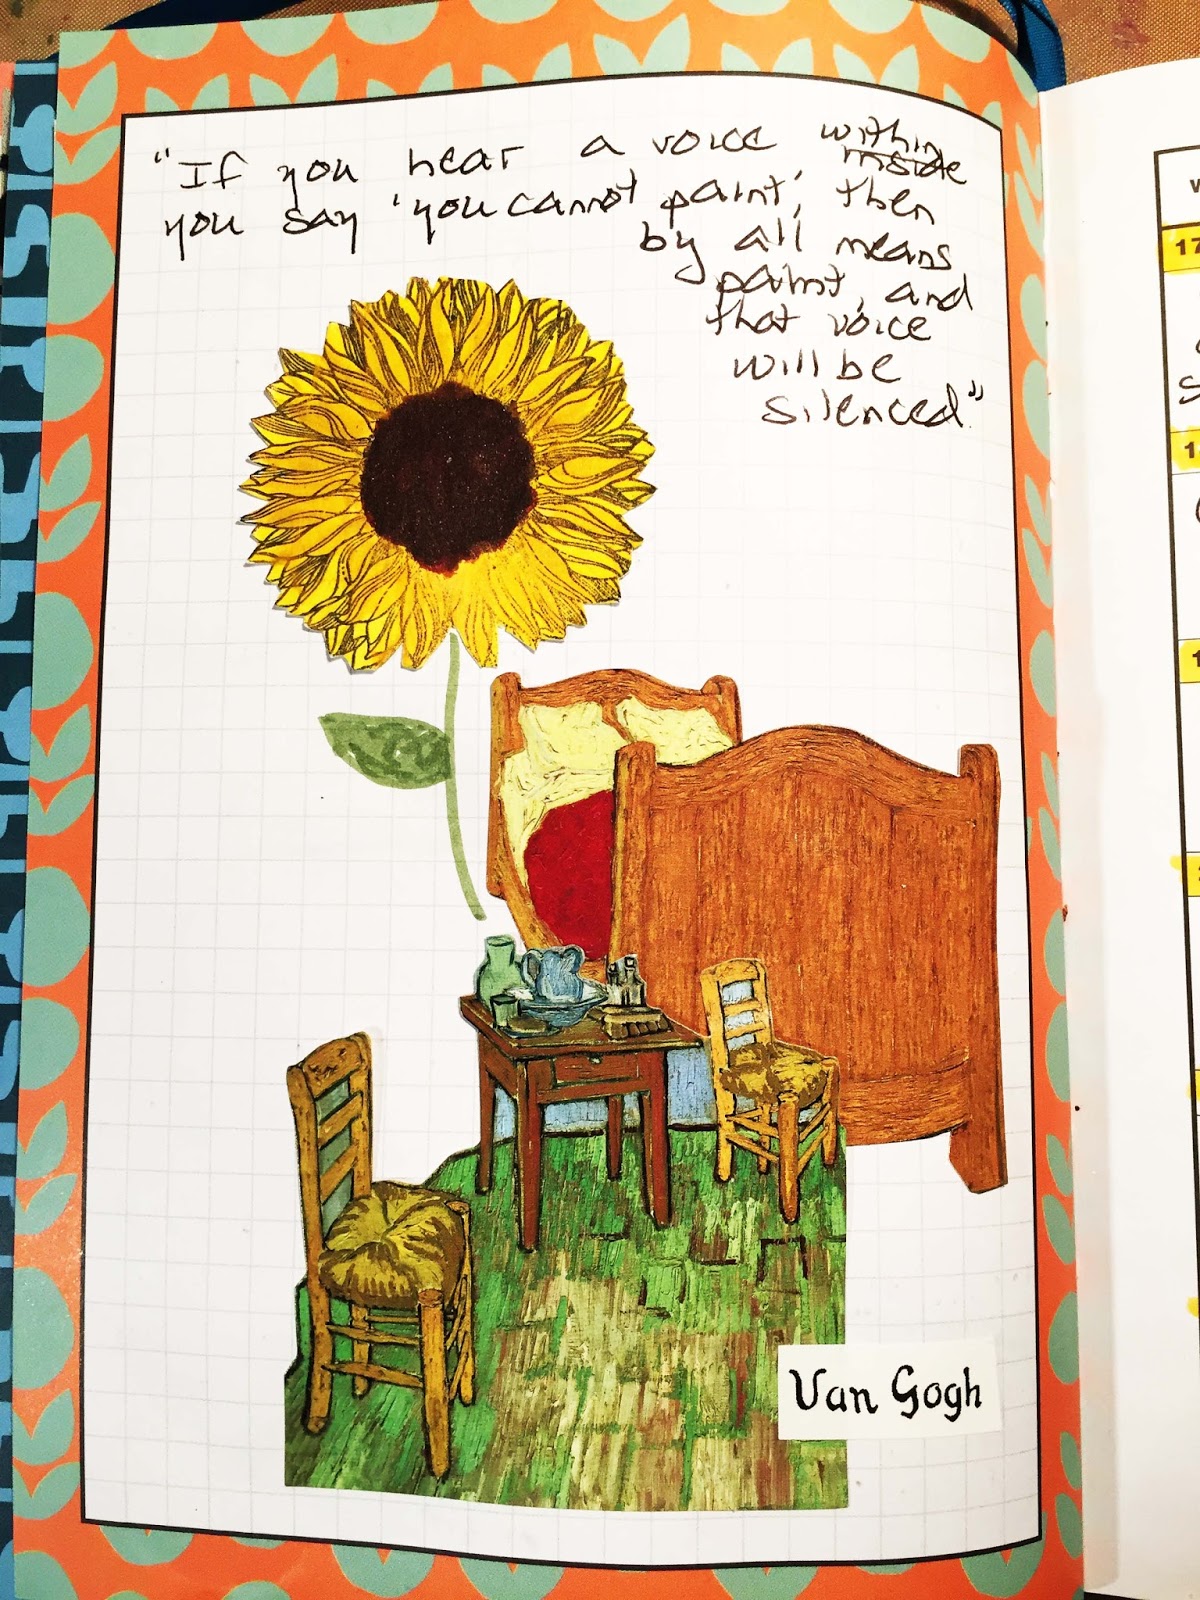 "If you hear a voice within
you say 'you cannot paint,' then
by all means
paint, and
that voice
will be
silenced."
Van Gogh
17